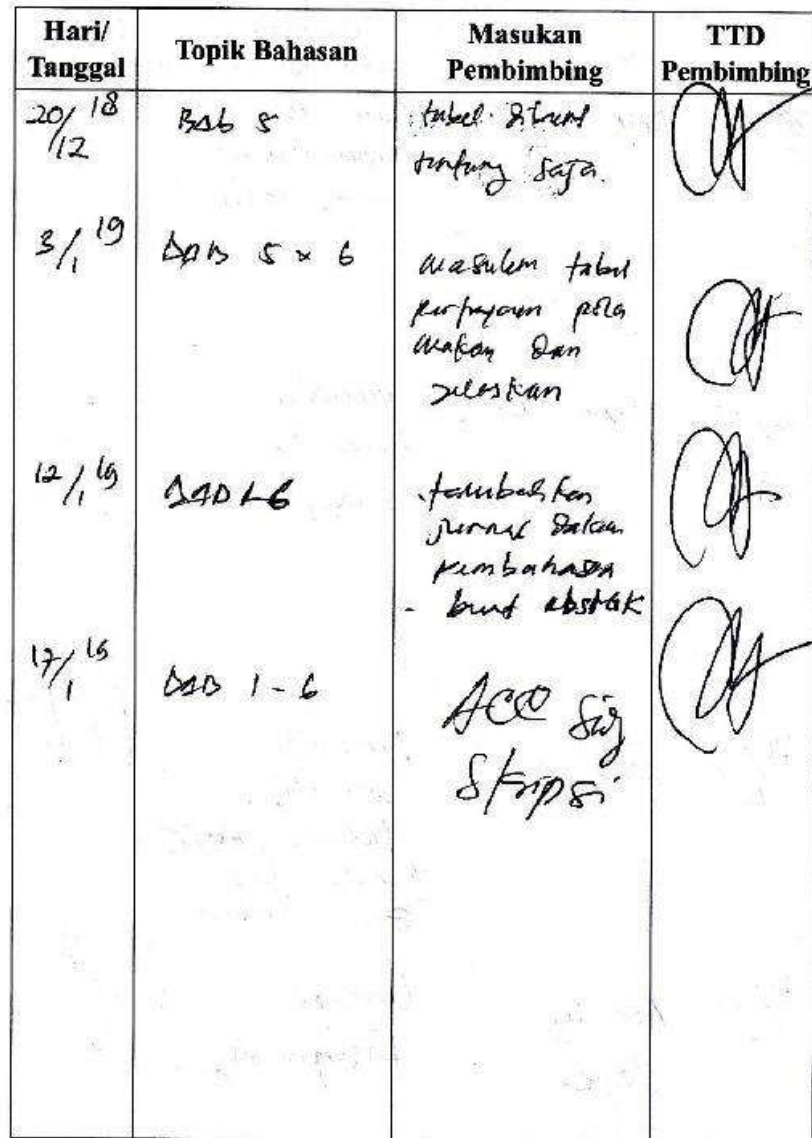 Hari/ Tanggal Topik Bahasan Masukan Pembimbing TTD Pembimbing
20/12 18 Bab 5 tabel
saja.
3/1 19 BAB 5 & 6 masukan tabel
pertanyaan pola
makan dan
jelaskan
12/1 19 BAB 1-6 . tambahkan
jurnal dalam
pembahasan
- buat abstrak
17/1 19 BAB 1 - 6 ACC
Skripsi